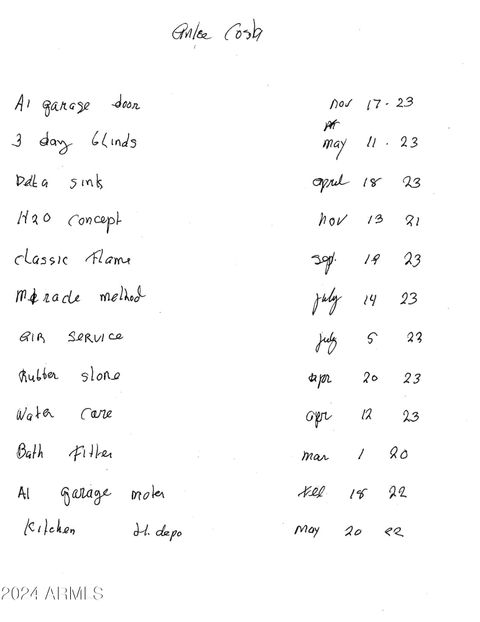 A1 garage door nov 17 - 23
3 day blinds may 11 - 23
Delta sink april 18 23
H2O concept nov 13 21
classic flame sep. 19 23
Miracle method july 14 23
AIR SERVICE july 5 23
Rubber stone apr 20 23
Water care apr 12 23
Bath fitter mar 1 20
A1 garage moter feb 18 22
Kitchen H. depo May 20 22
2024 ARMLS